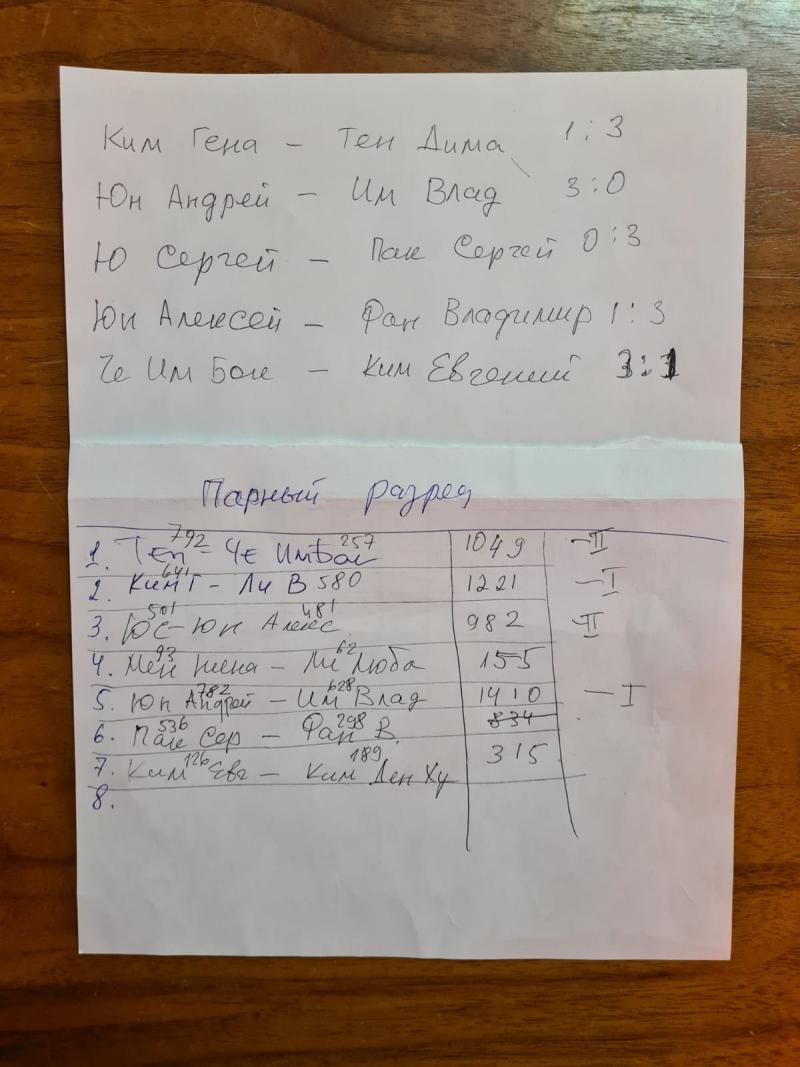 Ким Гена - Тен Дима 1:3
Юн Андрей - Им Влад 3:0
Ю Сергей - Пак Сергей 0:3
Юн Алексей - Фан Владимир 1:3
Че Им Бок - Ким Евгений 3:1
Парный разряд
1. Тен 792 - Че Имбок 257 1049 - II
2. Ким Г 641 - Ли В 580 1221 - I
3. Ю С 501 - Юн Алекс. 481 982 - II
4. Мен Жена 93 - Ли Люба 62 155
5. Юн Андрей 782 - Им Влад 628 1410 - I
6. Пак Сер 536 - Фан В. 298 834
7. Ким Евг 126 - Ким Ден Ху 189 315
8.